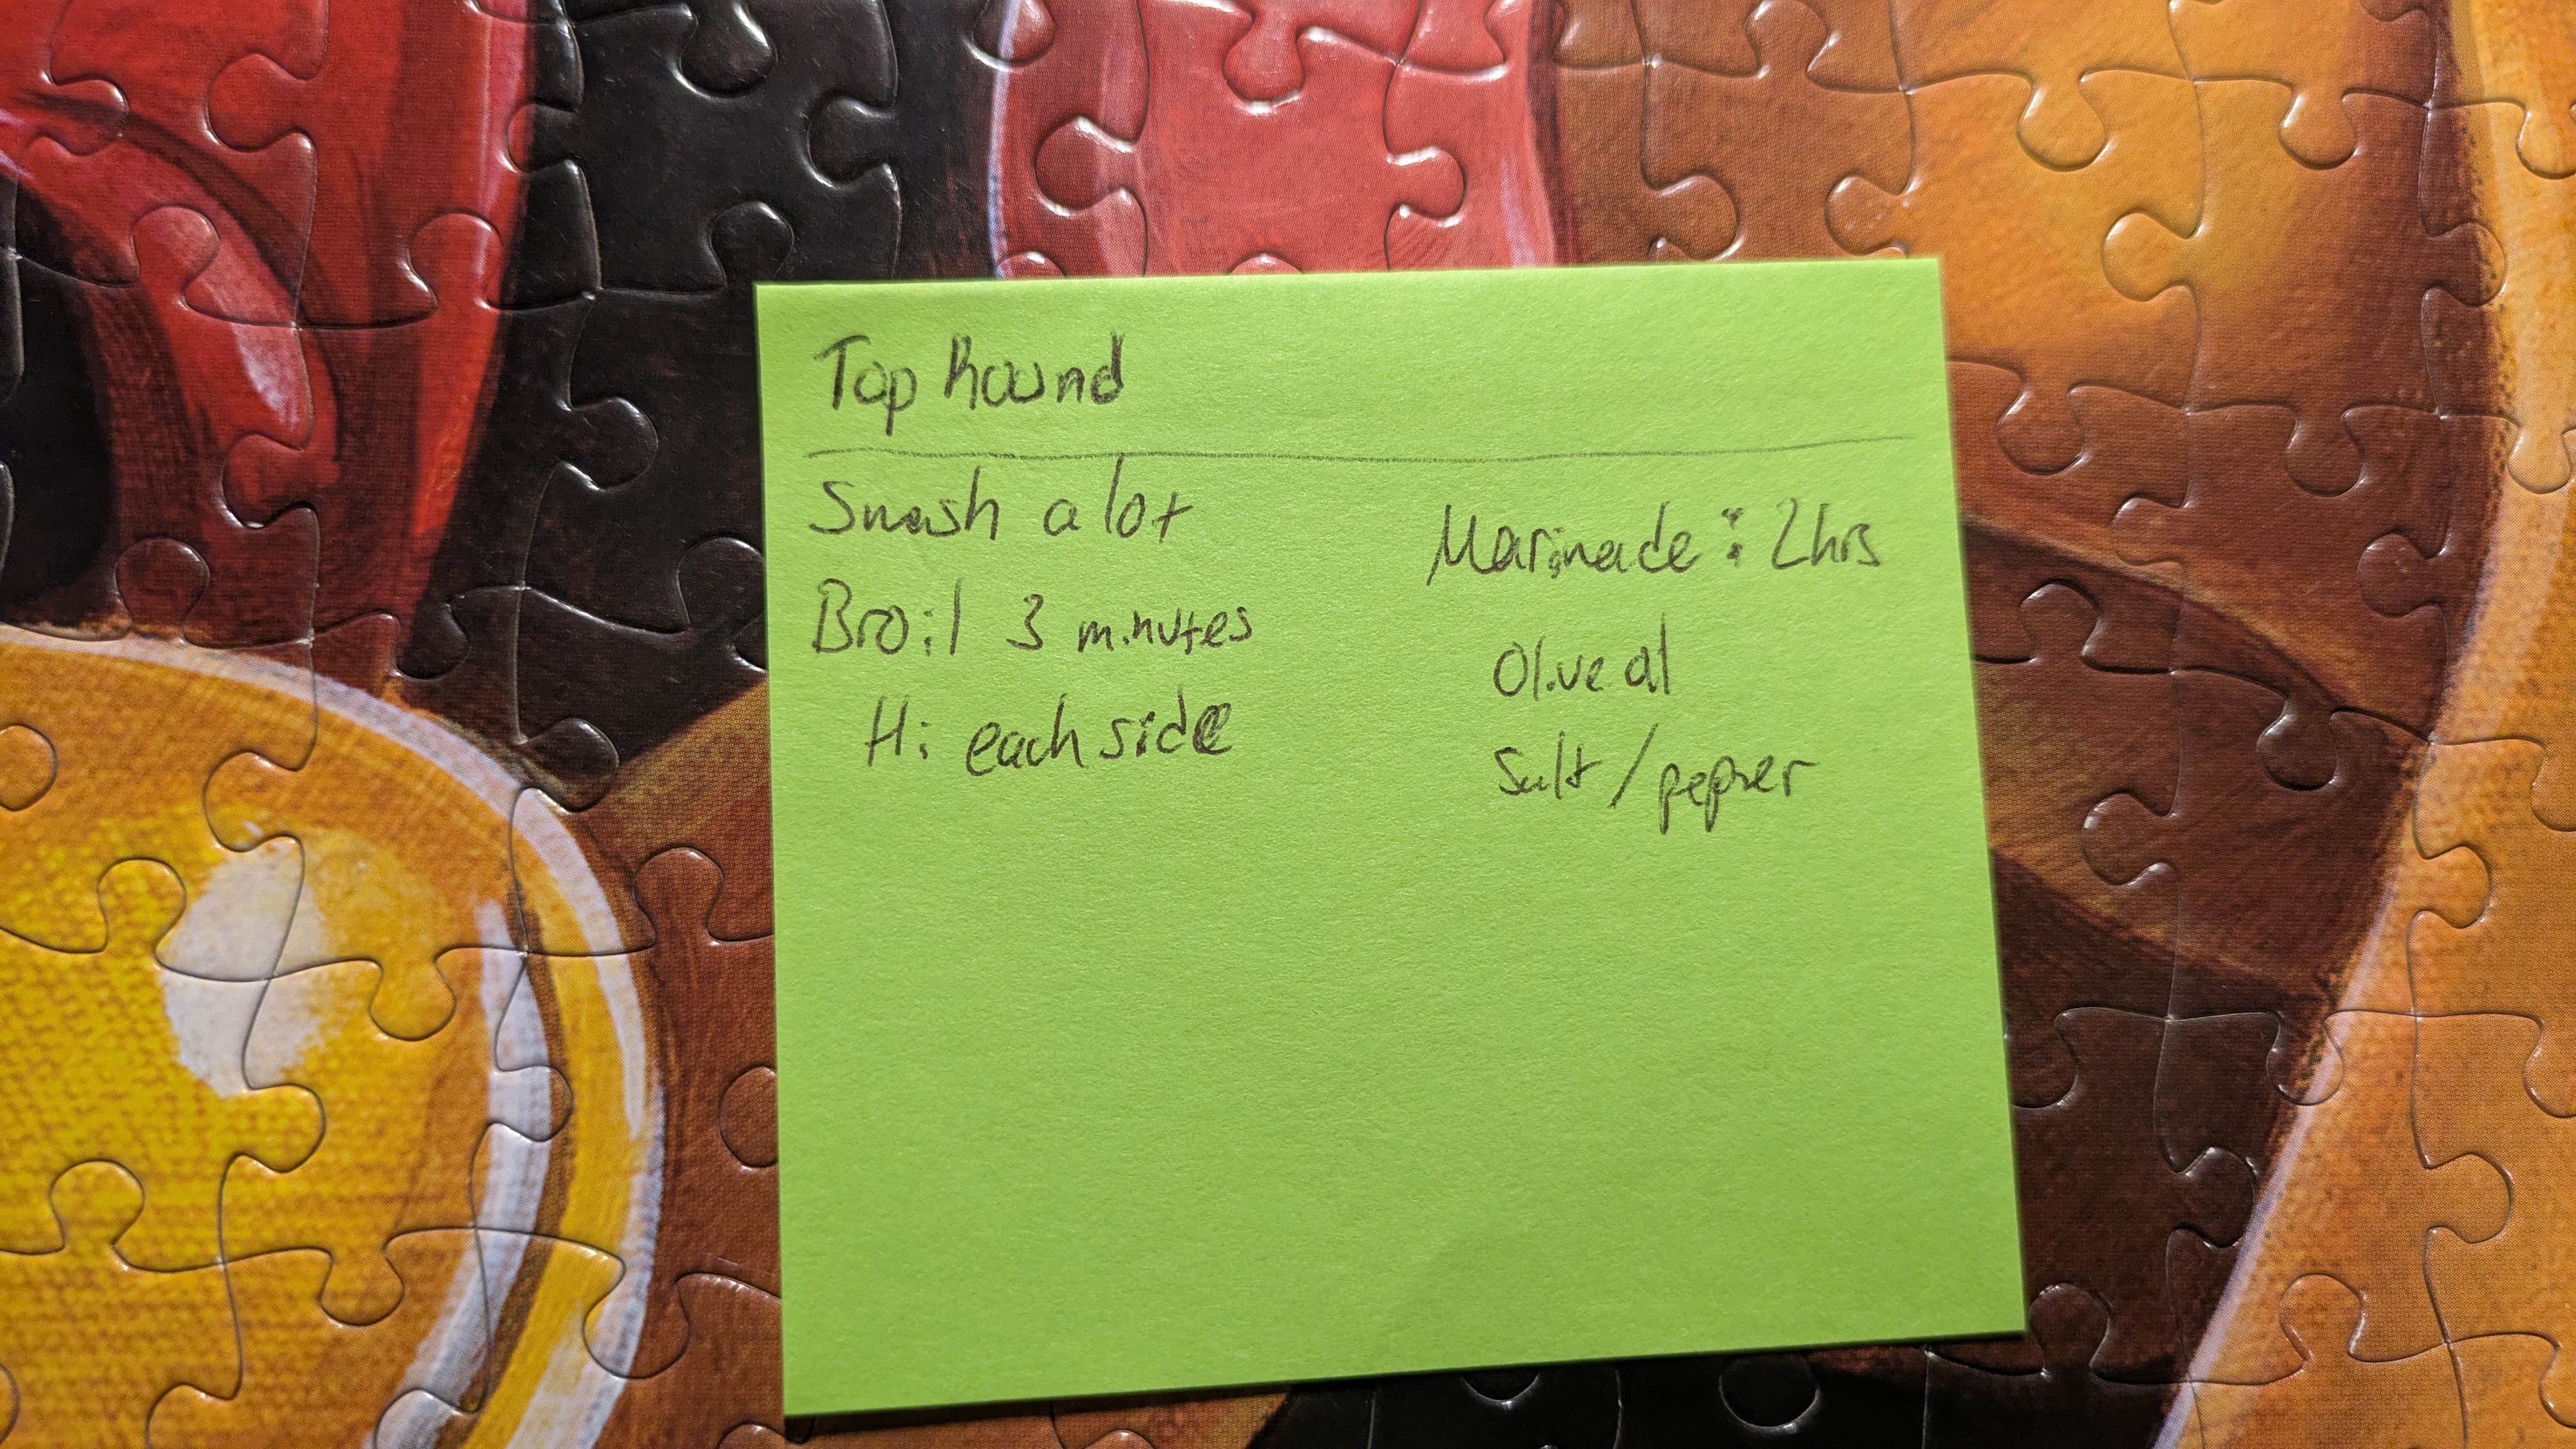 Top Round
Smash a lot
Broil 3 minutes
Hi each side
Marinade: 2hrs
Olive oil
Salt/pepper